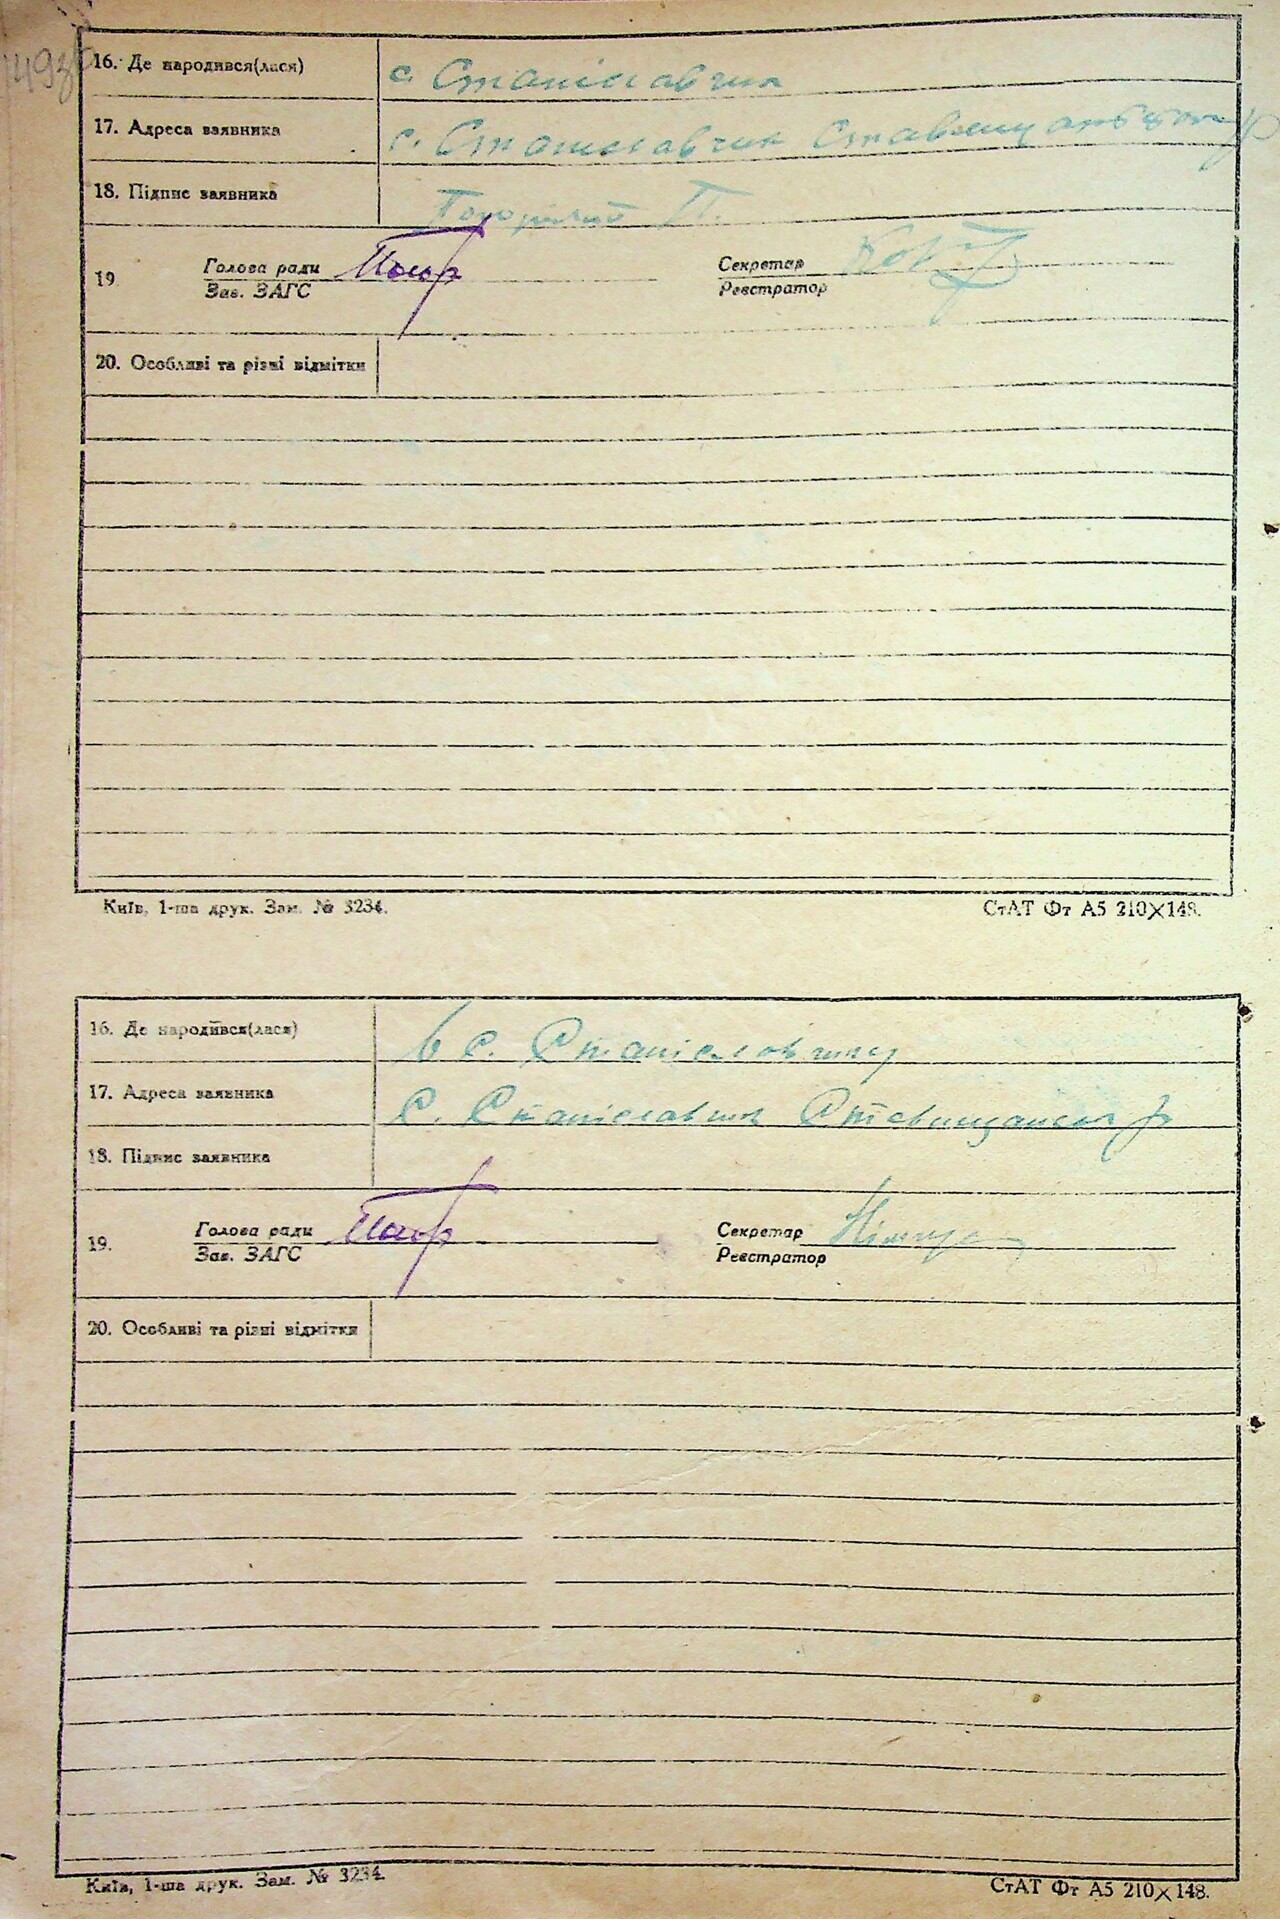 16. Де народився(лася) с. Станіславчик
17. Адреса заявника с. Станиславчик
18. Підпис заявника П.
19 Голова ради Секретар
Зав. ЗАГС Реєстратор
20. Особливі та різні відмітки
Київ, 1-ша друк. Зам. № 3234. СтАТ Фт А5 210×148.
16. Де народився(лася) в с. Станіславчику
17. Адреса заявника С. Станіславчик
18. Підпис заявника
19. Голова ради Секретар
Зав. ЗАГС Реєстратор
20. Особливі та різні відмітки
Київ, 1-ша друк. Зам. № 3234. СтАТ Фт А5 210×148.